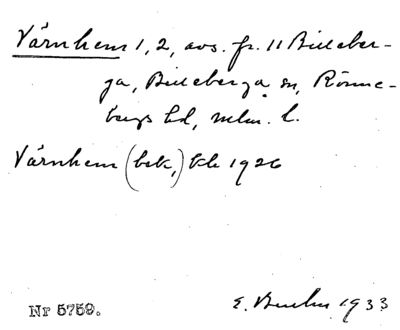 Värnhem 1, 2, avs. fr. 11 Billeber-
ga, Billeberga sn, Rönne-
bergs hd, Mlm. l.
Värnhem (bek,) kb 1926
Nr 5759.
E. 1933